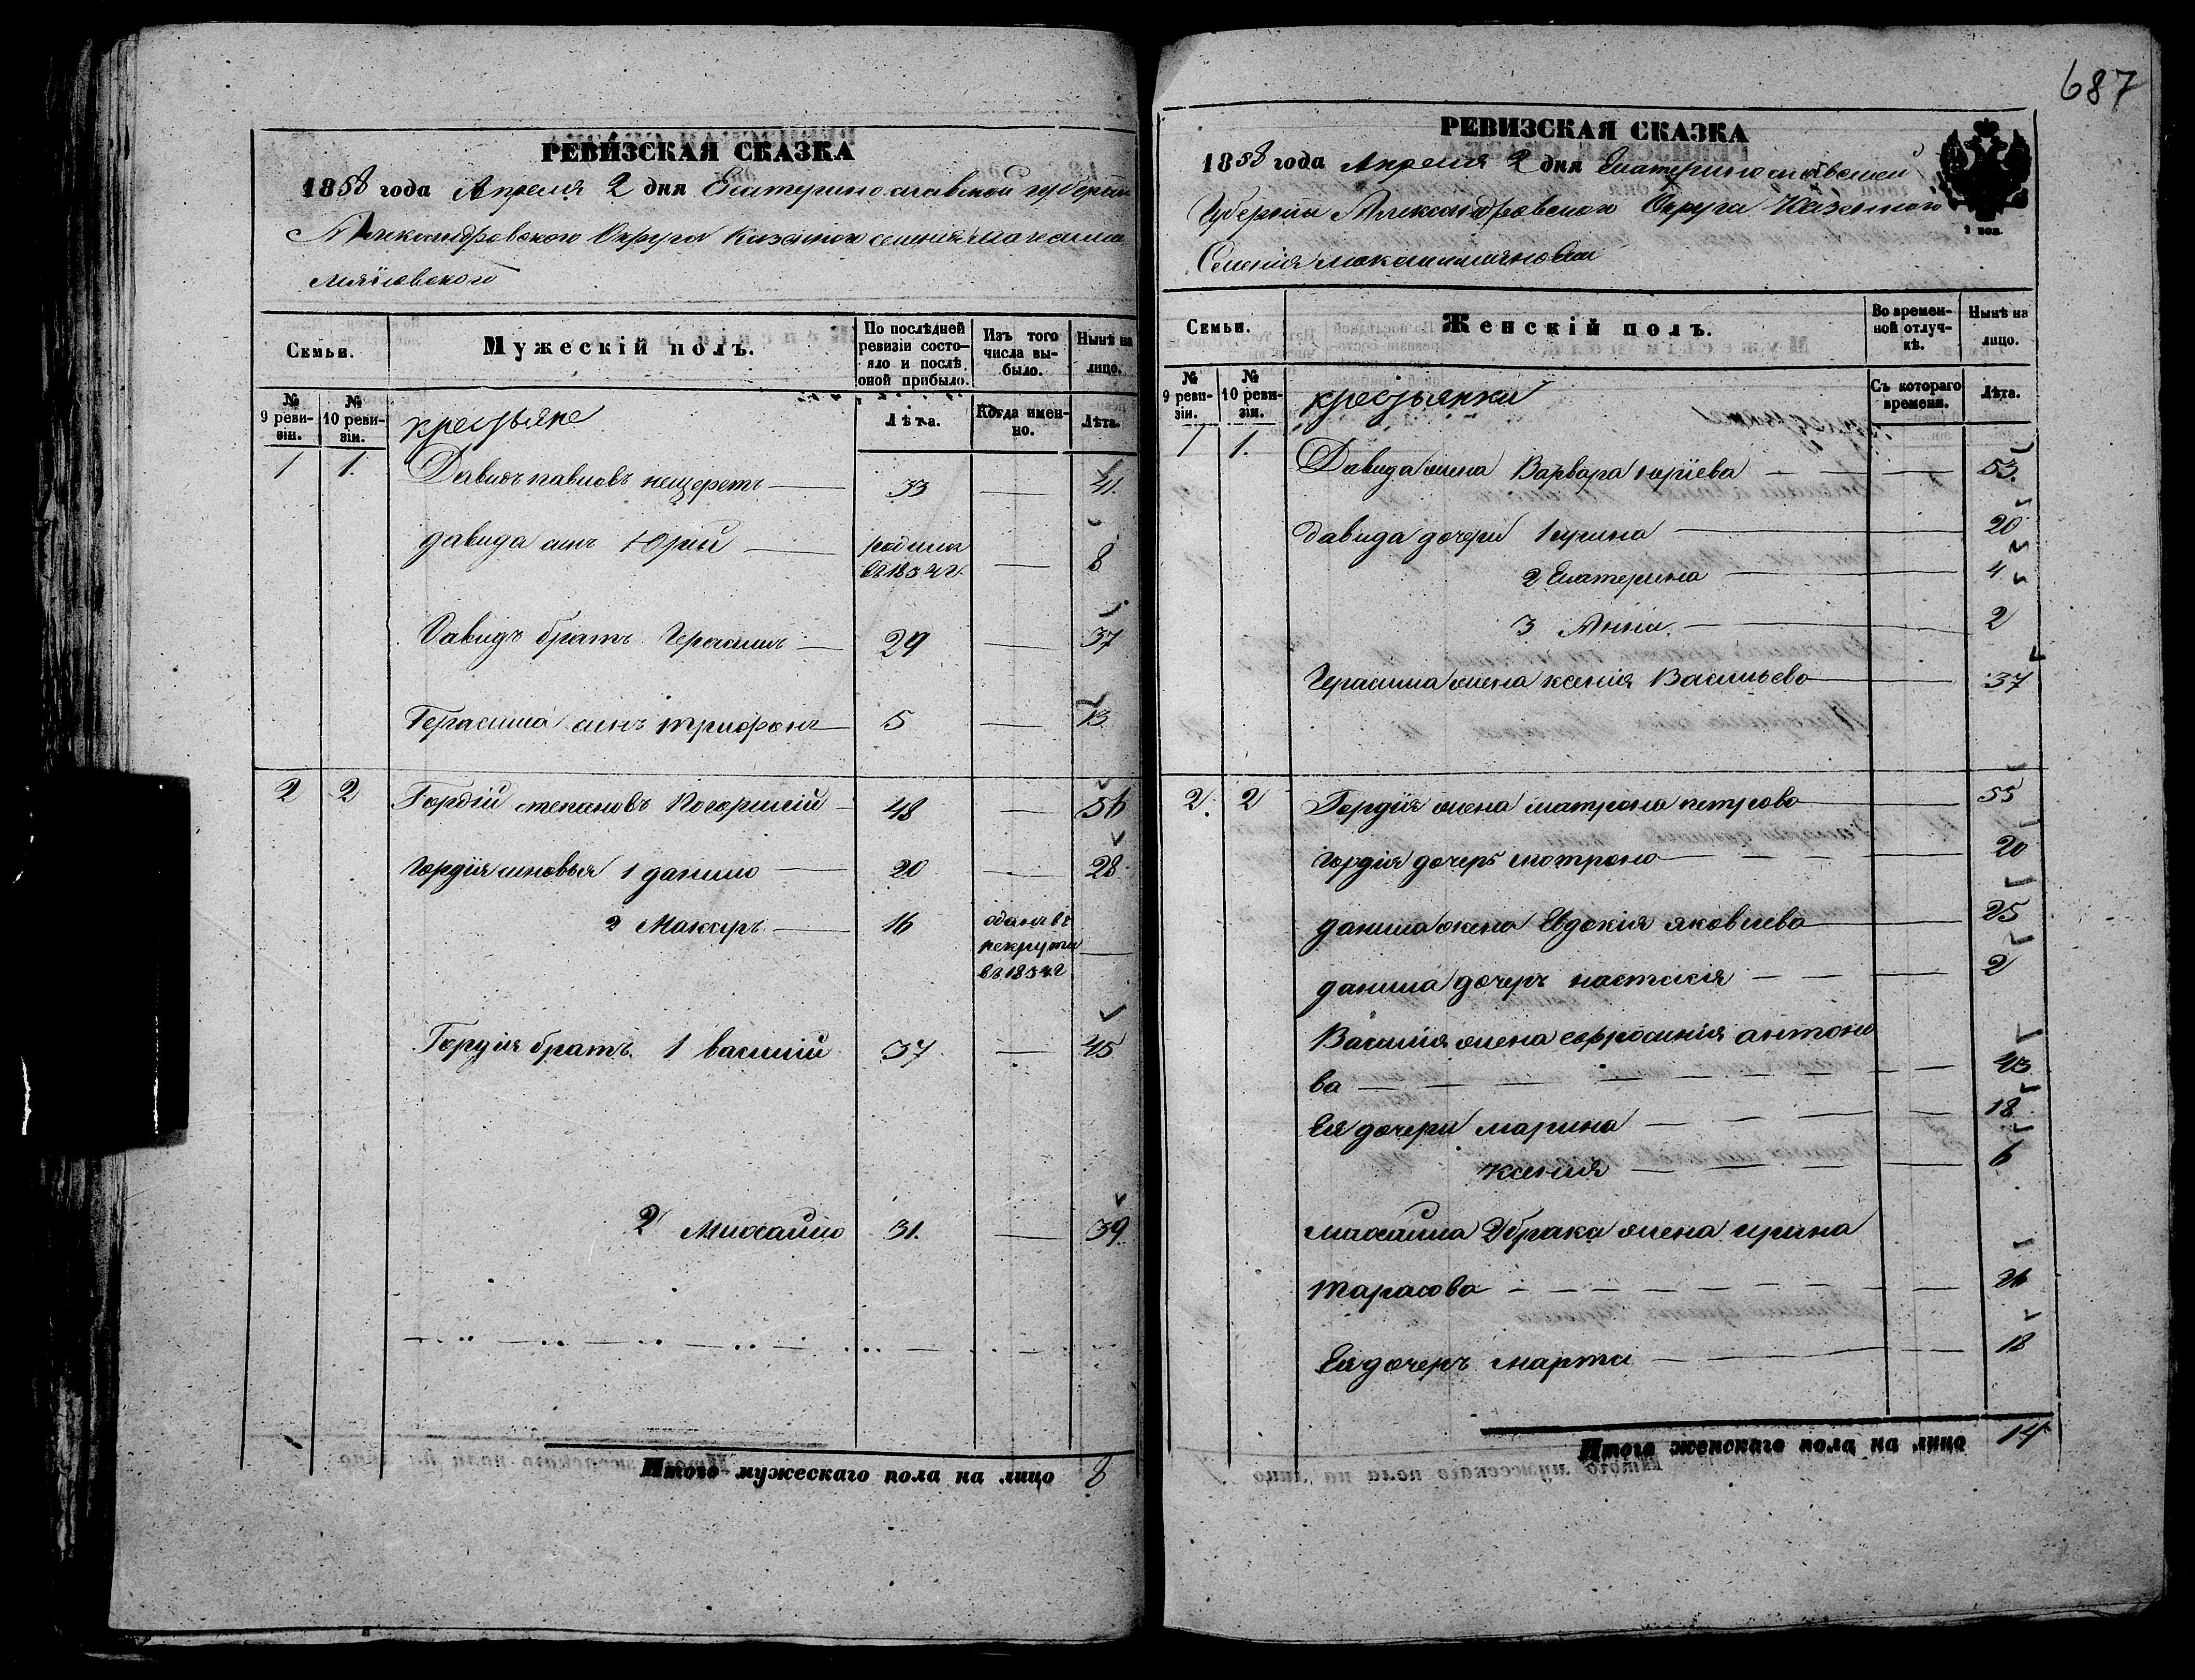 РЕВИЗСКАЯ СКАЗКА
1858 года Апреля 2 дня Екатеринославской губернии
Александровского Округа Казенного селения Максими
ляновского
Семьи.
Мужескій полъ.
По послѣдней ревизіи состо-яло и послѣ оной прибыло.
Изъ того числа вы-было.
Нынѣ на лицо.
№ 9 реви-зіи.
№ 10 реви-зіи.
крестьяне
Лѣта.
Когда имен-но.
Лѣта.
1 1. Давидъ павловъ нещеретъ 33 — 41.
давида синъ Юрий родился въ 1854 г. — 8
Давидъ братъ Герасимъ 29 — 37
Герасима синъ трифонъ 5 — 13
2 2 Гордій степановъ Погорилій 48 — 56
Гордія сыновья 1 данило 20 — 28
2 Макаръ 16 оданъ въ рекруты въ 1854 г —
Гордія братъ 1 василій 37 — 45
2 Михайло 31. — 39
Итого мужескаго пола на лицо 8
687
РЕВИЗСКАЯ СКАЗКА
1858 года Апреля 2 дня Екатеринославской
Губернии Александровского Округа Казенного
Селения максимиляновки
Семьи.
Женскій полъ.
Во времен-ной отлуч-кѣ.
Нынѣ на лицо.
№ 9 реви-зіи.
№ 10 реви-зіи.
крестьянки
Съ котораго времени.
Лѣта.
1 1. Давида жена Варвара юріева — 53.
давида дочери 1 ирина — 20
2 Екатерина — 4
3 Анна — 2
Герасима жена ксенія Васильева — 37
2. 2 Гордія жена матрона петрова 55
гордія дочеръ мотрона — 20
данила жена Евдокія яковлева 25
данила дочеръ настасія — 2
Василія жена ефросинія антоно
ва — 43
Ея дочери марина — 18
ксения — 6
михаила 2 брака жена ирина
тарасова —
Ея дочеръ марта — 18
Итого женскаго пола на лицо 14